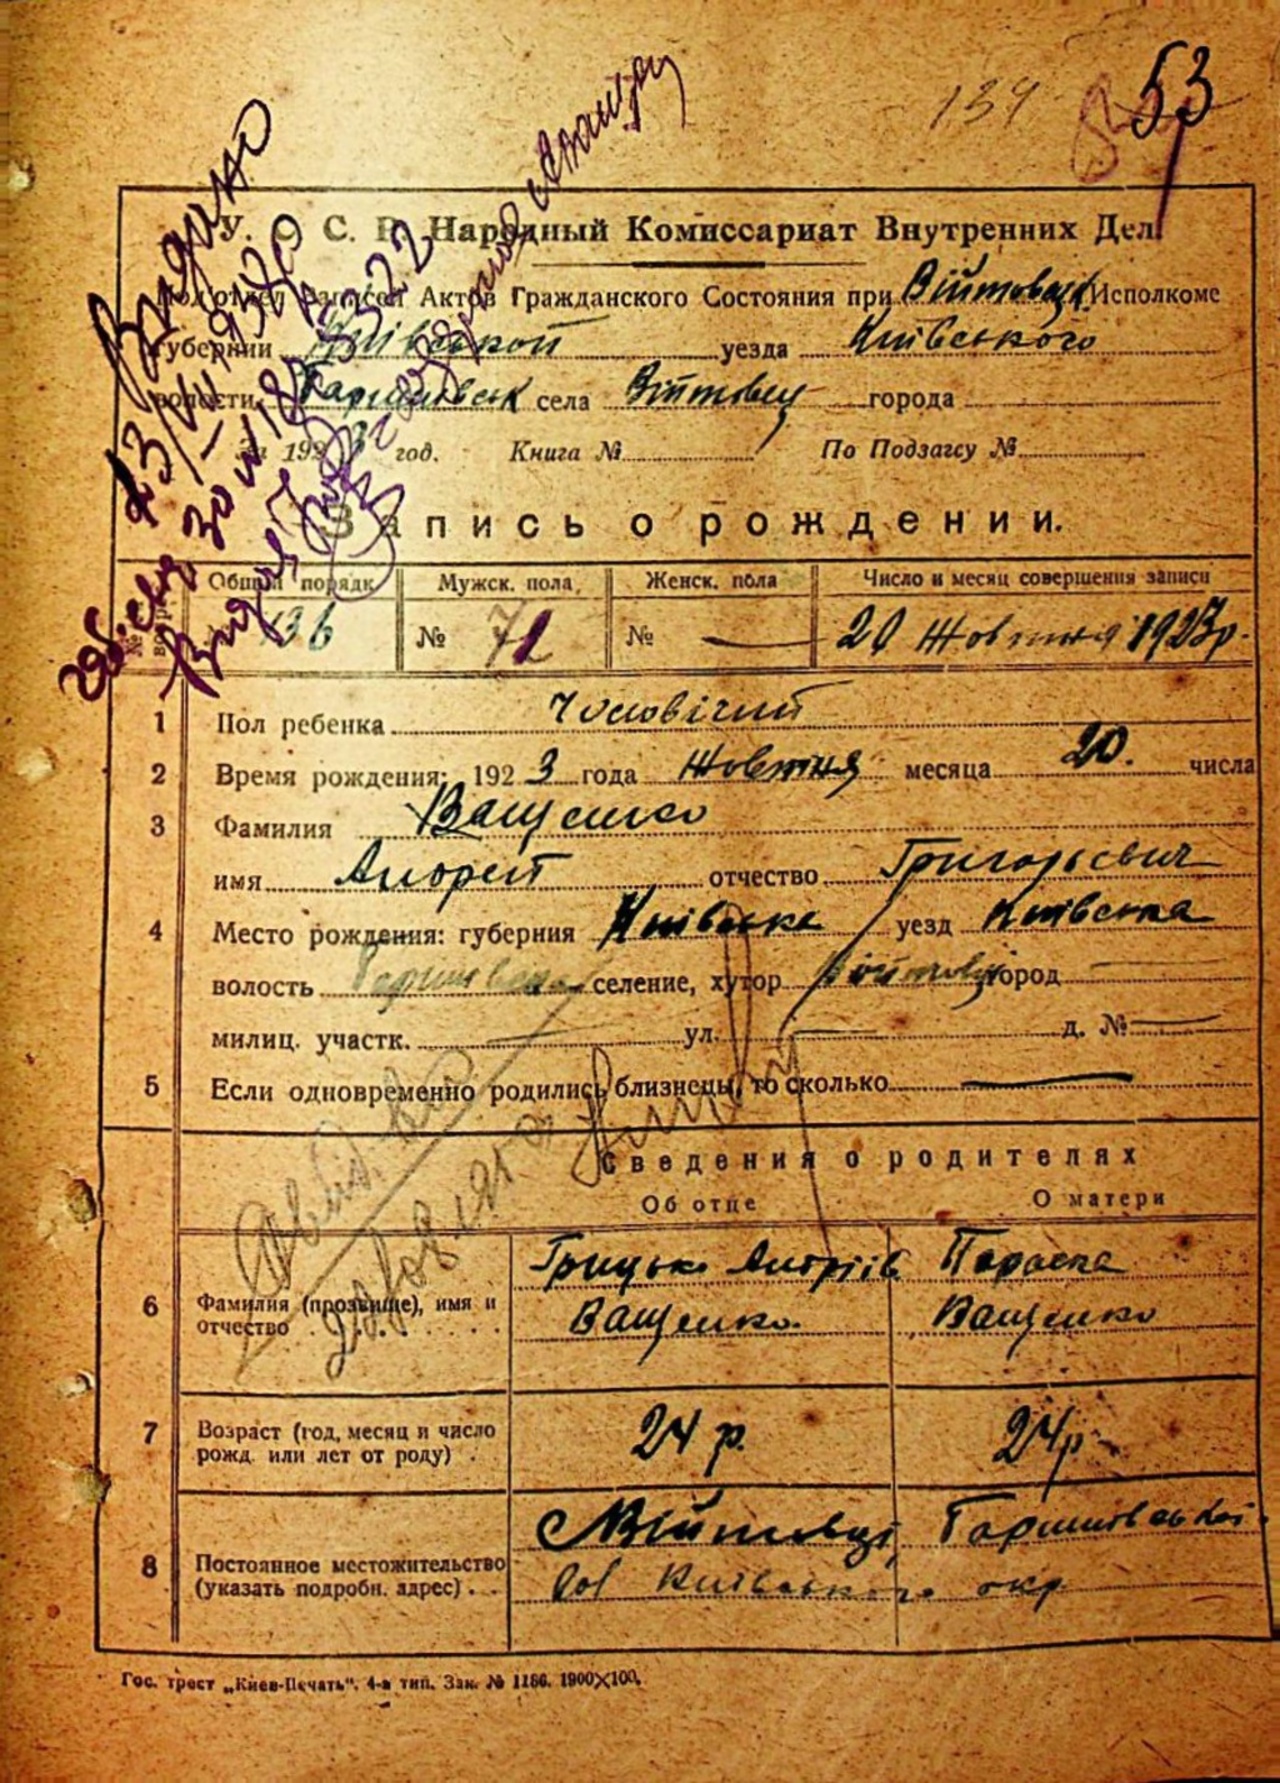 134 53
У. С. С. Р. Народный Комиссариат Внутренних Дел
Подотдел Записей Актов Гражданского Состояния при Війтовецк. Исполкоме
Губернии Київської уезда Київського
волости Баришівськ села Війтовец города
За 1923 год. Книга № По Подзагсу №
Запись о рождении.
Общий порядк. Мужск. пола Женск. пола Число и месяц совершения записи
136 № 71 № — 20 Жовтня 1923р.
1 Пол ребенка Чоловічий
2 Время рождения: 1923 года Жовтня месяца 20. числа
3 Фамилия Ващенко
имя Андрей отчество Григорьевич
4 Место рождения: губерния Київська уезд Київська
волость Баришівська селение, хутор Війтовці город —
милиц. участк. — ул. — д. № —
5 Если одновременно родились близнецы, то сколько —
Сведения о родителях
Об отце О матери
Грицько Андріїв Параска
6 Фамилия (прозвище), имя и отчество Ващенко. Ващенко
7 Возраст (год, месяц и число рожд. или лет от роду) 24 р. 24 р.
8 Постоянное местожительство (указать подробн. адрес) с. Війтовці, Баришівської
Київського окр.
Гос. трест „Киев-Печать". 4-я тип. Зак. № 1186. 1900×100.